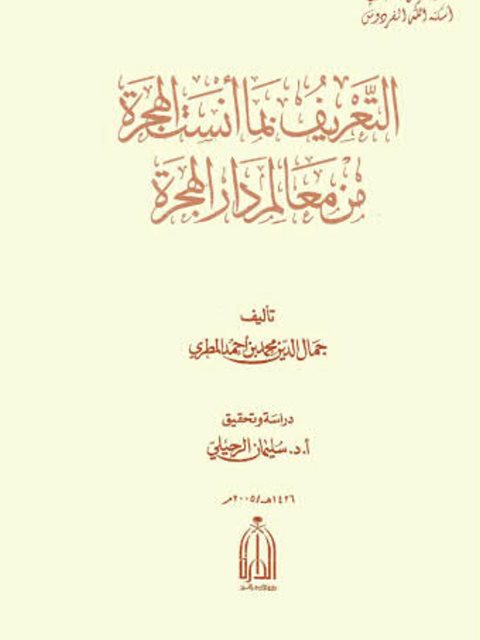 أسكنه الله الفردوس
التَّعْرِيفُ بمَا أنسَت الهجرَة
مِنْ مَعَالم دَار الهجرَة
تأليف
جمال الدين محمد بن أحمد المطري
دراسة وتحقيق
أ.د. سليمان الرحيلي
١٤٢٦هـ/٢٠٠٥م
الدارة